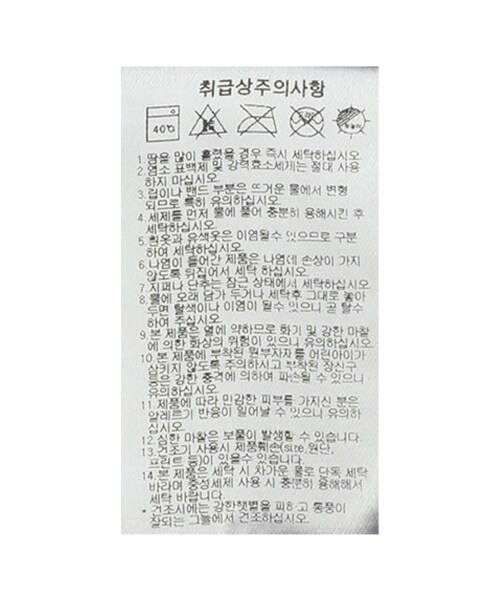 취급상주의사항
40℃
1.땀을 많이 흘렸을 경우 즉시 세탁하십시오.
2.염소 표백제 및 강력효소세제는 절대 사용
하지 마십시오.
3.립이나 밴드 부분은 뜨거운 물에서 변형
되므로 특히 유의하십시오.
4.세제를 먼저 물에 풀어 충분히 용해시킨 후
세탁하십시오.
5.흰옷과 유색옷은 이염될수 있으므로 구분
하여 세탁하십시오.
6.나염이 들어간 제품은 나염에 손상이 가지
않도록 뒤집어서 세탁 하십시오.
7.지퍼나 단추는 잠근 상태에서 세탁하십시오.
8.물에 오래 담가 두거나 세탁후 그대로 놓아
두면 탈색이나 이염이 될수 있으니 곧 탈수
하여 주십시오.
9.본 제품은 열에 약하므로 화기 및 강한 마찰
에 의한 화상의 위험이 있으니 유의하십시오.
10.본 제품에 부착된 원부자재를 어린아이가
삼키지 않도록 주의하시고 부착된 장신구
등은 강한 충격에 의하여 파손될 수 있으니
유의하십시오.
11.제품에 따라 민감한 피부를 가지신 분은
알레르기 반응이 일어날 수 있으니 유의하
십시오.
12.심한 마찰은 보풀이 발생할 수 있습니다.
13.건조기 사용시 제품훼손(size,원단,
프린트 등)이 있을수 있습니다.
14.본 제품은 세탁 시 차가운 물로 단독 세탁
바라며 중성세제 사용 시 충분히 용해해서
세탁 바랍니다.
* 건조시에는 강한햇볕을 피하고 통풍이
잘되는 그늘에서 건조하십시오.